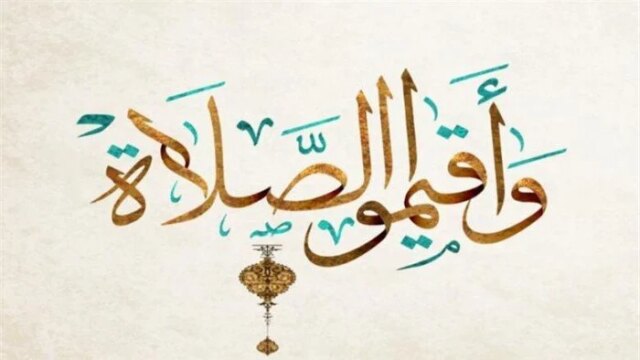 وَأَقيموا الصَّلاة